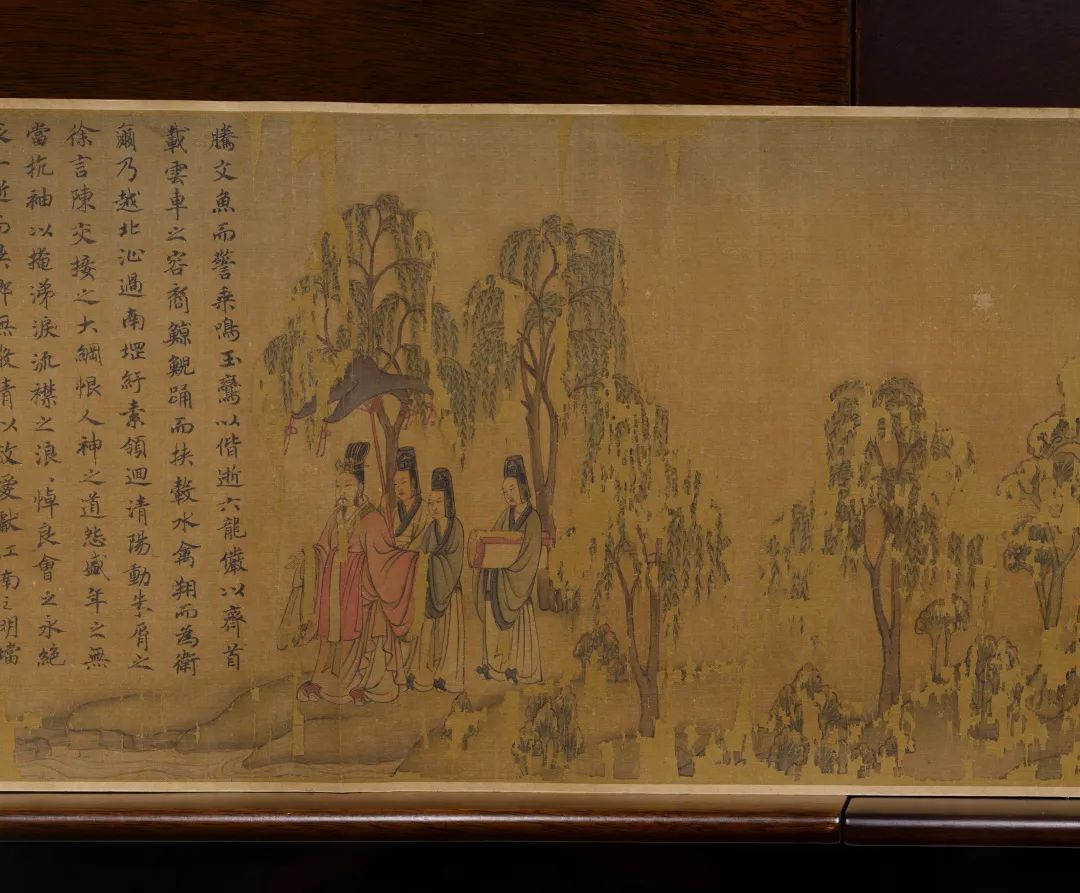 騰文魚而警乘鳴玉鸞以偕逝六龍儼以齊首
載雲車之容裔鯨鯢踊而扶轂水禽翔而為衛
爾乃越北沚過南堽紆素領迴清陽動朱脣之
徐言陳交接之大綱恨人神之道怨盛年之無
當抗袖以掩涕淚流襟之浪、悼良會之永絕
一逝而異鄉無情以效愛獻江南之明璫